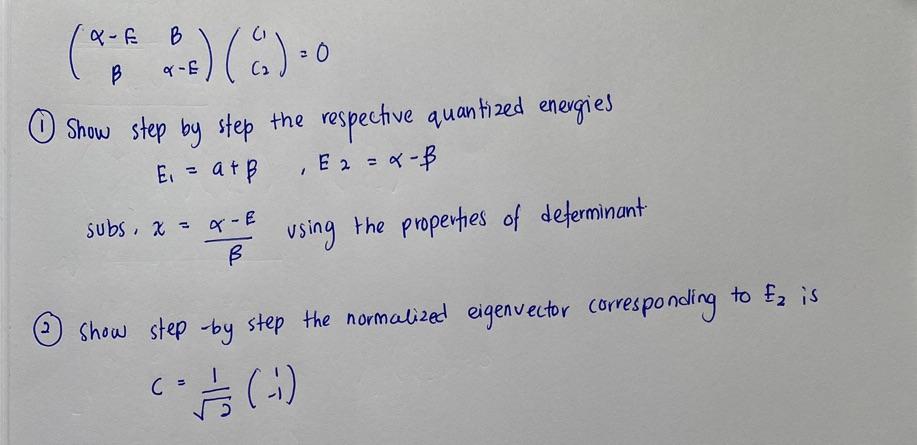 ( α-E B ) ( C1 ) = 0
( B α-E ) ( C2 )
① Show step by step the respective quantized energies
E1 = a+β , E2 = α-β
subs, x = α-E / β using the properties of determinant
② Show step-by step the normalized eigenvector corresponding to E2 is
C = 1/√2 ( 1 -1 )